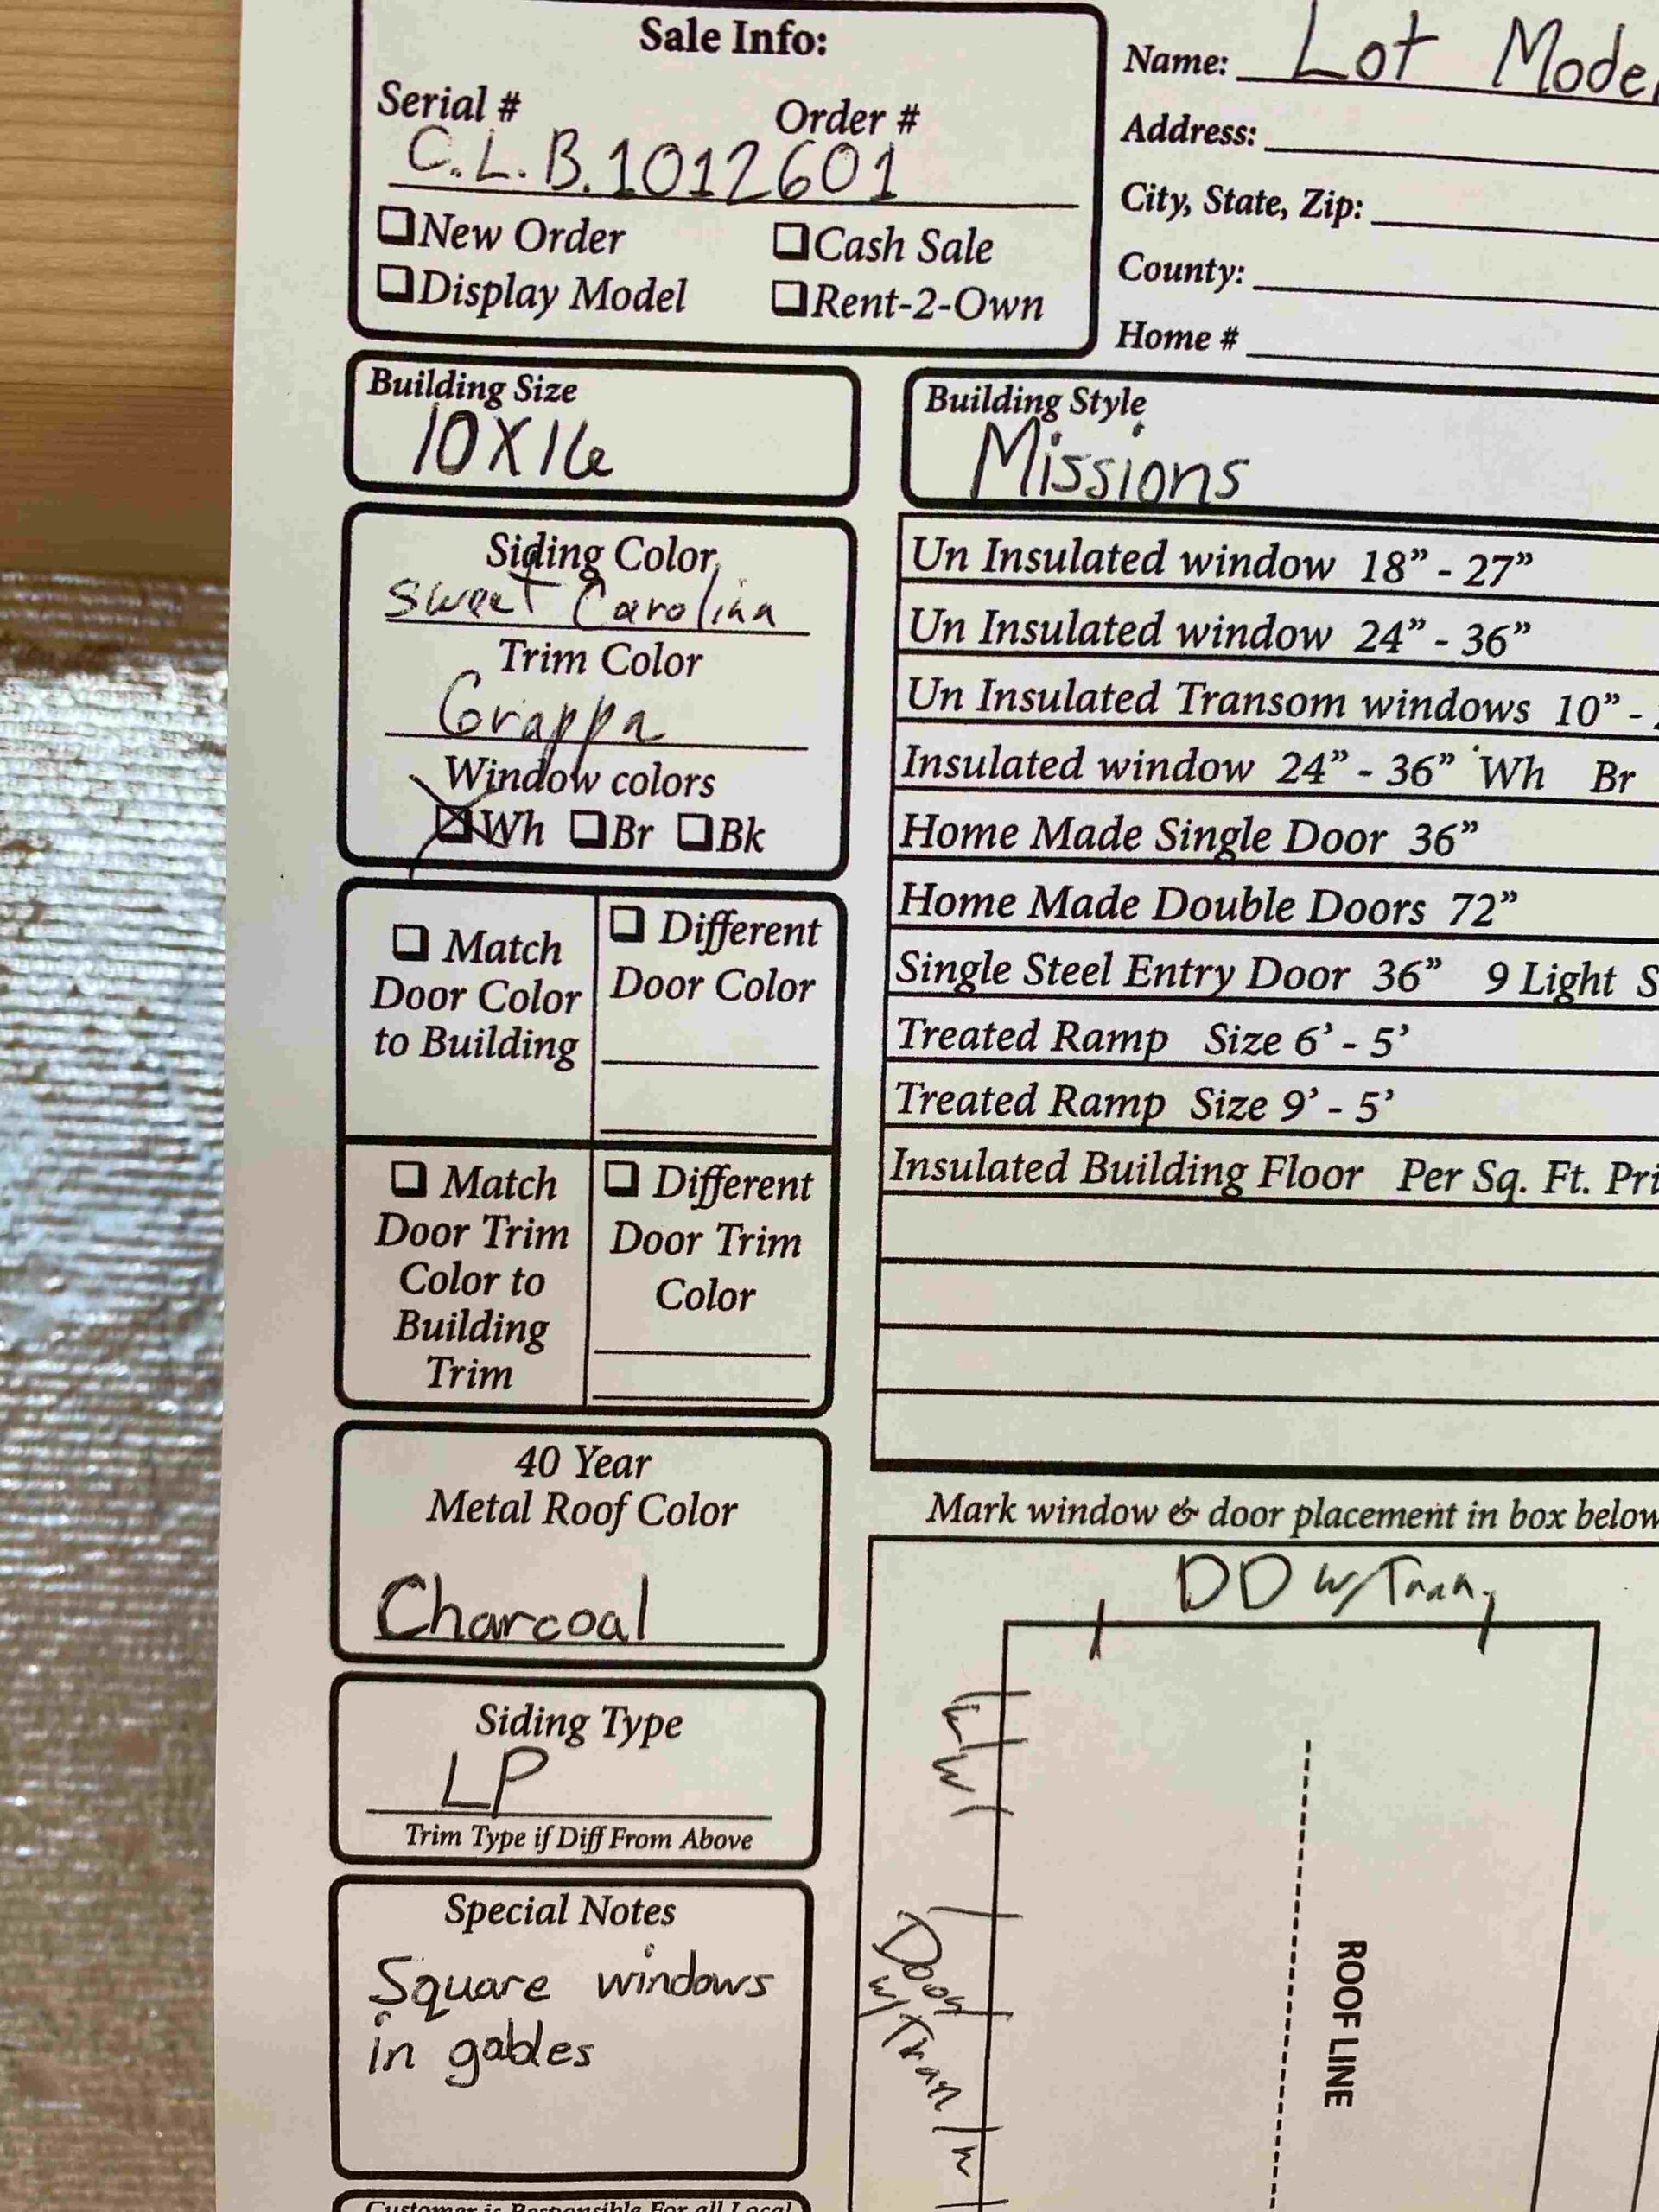 Sale Info:
Serial # Order #
C.L.B.1012601
New Order Cash Sale
Display Model Rent-2-Own
Name: Lot Model
Address:
City, State, Zip:
County:
Home #
Building Size
10X16
Building Style
Missions
Siding Color
Sweet Carolina
Trim Color
Grappa
Window colors
Wh Br Bk
Match
Door Color
to Building
Different
Door Color
Match
Door Trim
Color to
Building
Trim
Different
Door Trim
Color
40 Year
Metal Roof Color
Charcoal
Siding Type
LP
Trim Type if Diff From Above
Special Notes
Square windows
in gables
Customer is Responsible For all Local
Un Insulated window 18” - 27”
Un Insulated window 24” - 36”
Un Insulated Transom windows 10” -
Insulated window 24” - 36” Wh Br
Home Made Single Door 36”
Home Made Double Doors 72”
Single Steel Entry Door 36” 9 Light S
Treated Ramp Size 6’ - 5’
Treated Ramp Size 9’ - 5’
Insulated Building Floor Per Sq. Ft. Pri
Mark window & door placement in box below
DD w/Tran.
W
Door
w/Tran
W
ROOF LINE